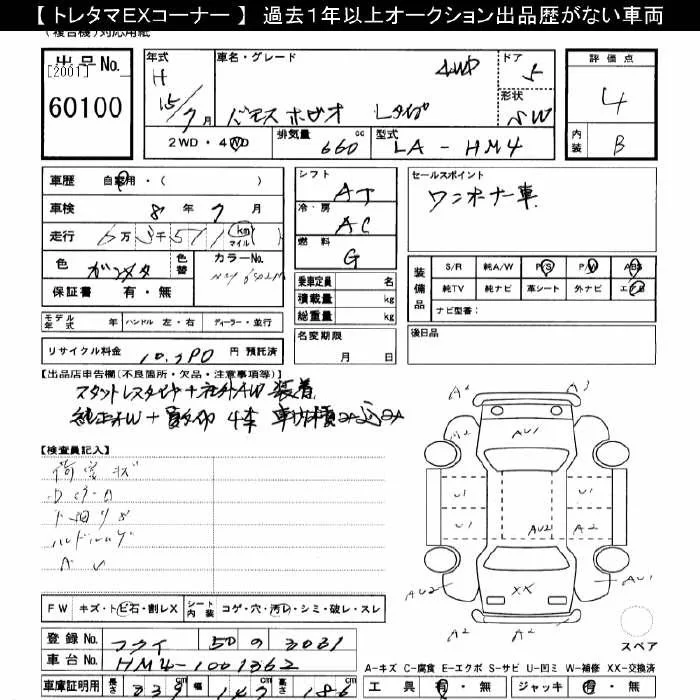 【トレタマEXコーナー】 過去1年以上オークション出品歴がない車両
(複合機)対応用紙
出品No.
[2001]
60100
年式
H
15/7月
車名・グレード
4WD
バモスホビオ Lタイプ
ドア
5
形状
SW
2WD・4WD
排気量 660 cc
型式 LA-HM4
評価点
4
内装
B
車歴 自家用・( )
車検 8年7月
走行 6万 千 5 km マイル ( )
色 ガンメタ
色替
カラーNo.
保証書 有・無
シフト
AT
冷・房
AC
燃料
G
乗車定員 名
積載量 kg
総重量 kg
セールスポイント
ワンオーナー車
装備品
S/R 純A/W P/S P/W ABS
純TV 純ナビ 革シート 外ナビ エアB
ナビ型番:
モデル年式 年 ハンドル 左・右 ディーラー・並行
名変期限
月 日
後日品
リサイクル料金 10,390 円 預託済
【出品店申告欄(不良箇所・欠品・注意事項等)】
スタットレスタイヤ+社外AW装着
純正AW+夏タイヤ 4本 車内積み込み
【検査員記入】
荷室キズ
下廻りサビ
ハンドルスレ
A2 A2
A2 AU1
U1 U1
AU2 A2
AU2 XX AU1
A2 A2
スペア
FW キズ・トビ石・割レX
シート内装 コゲ・穴・汚レ・シミ・破レ・スレ
登録No. フクイ 50 の 3031
車台No. HM4-1001362
車庫証明用 長さ 339 cm 幅 147 cm 高さ 186 cm
A-キズ C-腐食 E-エクボ S-サビ U-凹ミ W-補修 XX-交換済
工具 有・無 ジャッキ 有・無